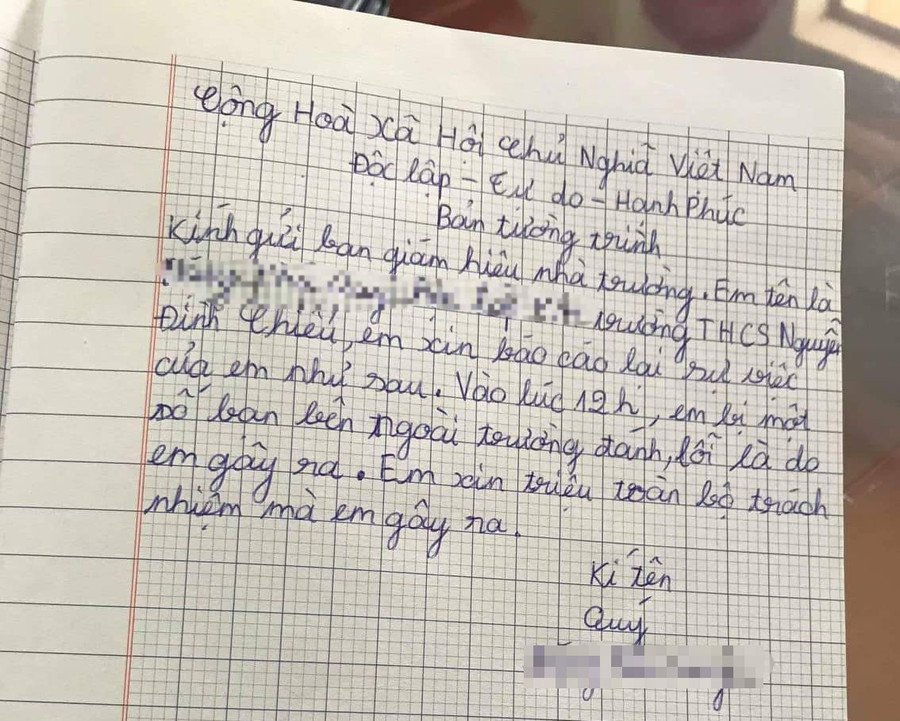 Cộng Hoà Xã Hội Chủ Nghiã Việt Nam
Độc lập - Tự do - Hạnh Phúc
Bản tường trình
Kính gửi ban giám hiệu nhà trường. Em tên là
trường THCS Nguyễn
Đình Chiểu, em xin báo cáo lại sự việc
của em như sau. Vào lúc 12h, em bị một
số bạn bên ngoài trường đánh, lỗi là do
em gây ra. Em xin triệu toàn bộ trách
nhiệm mà em gây ra.
Kí tên
Quý